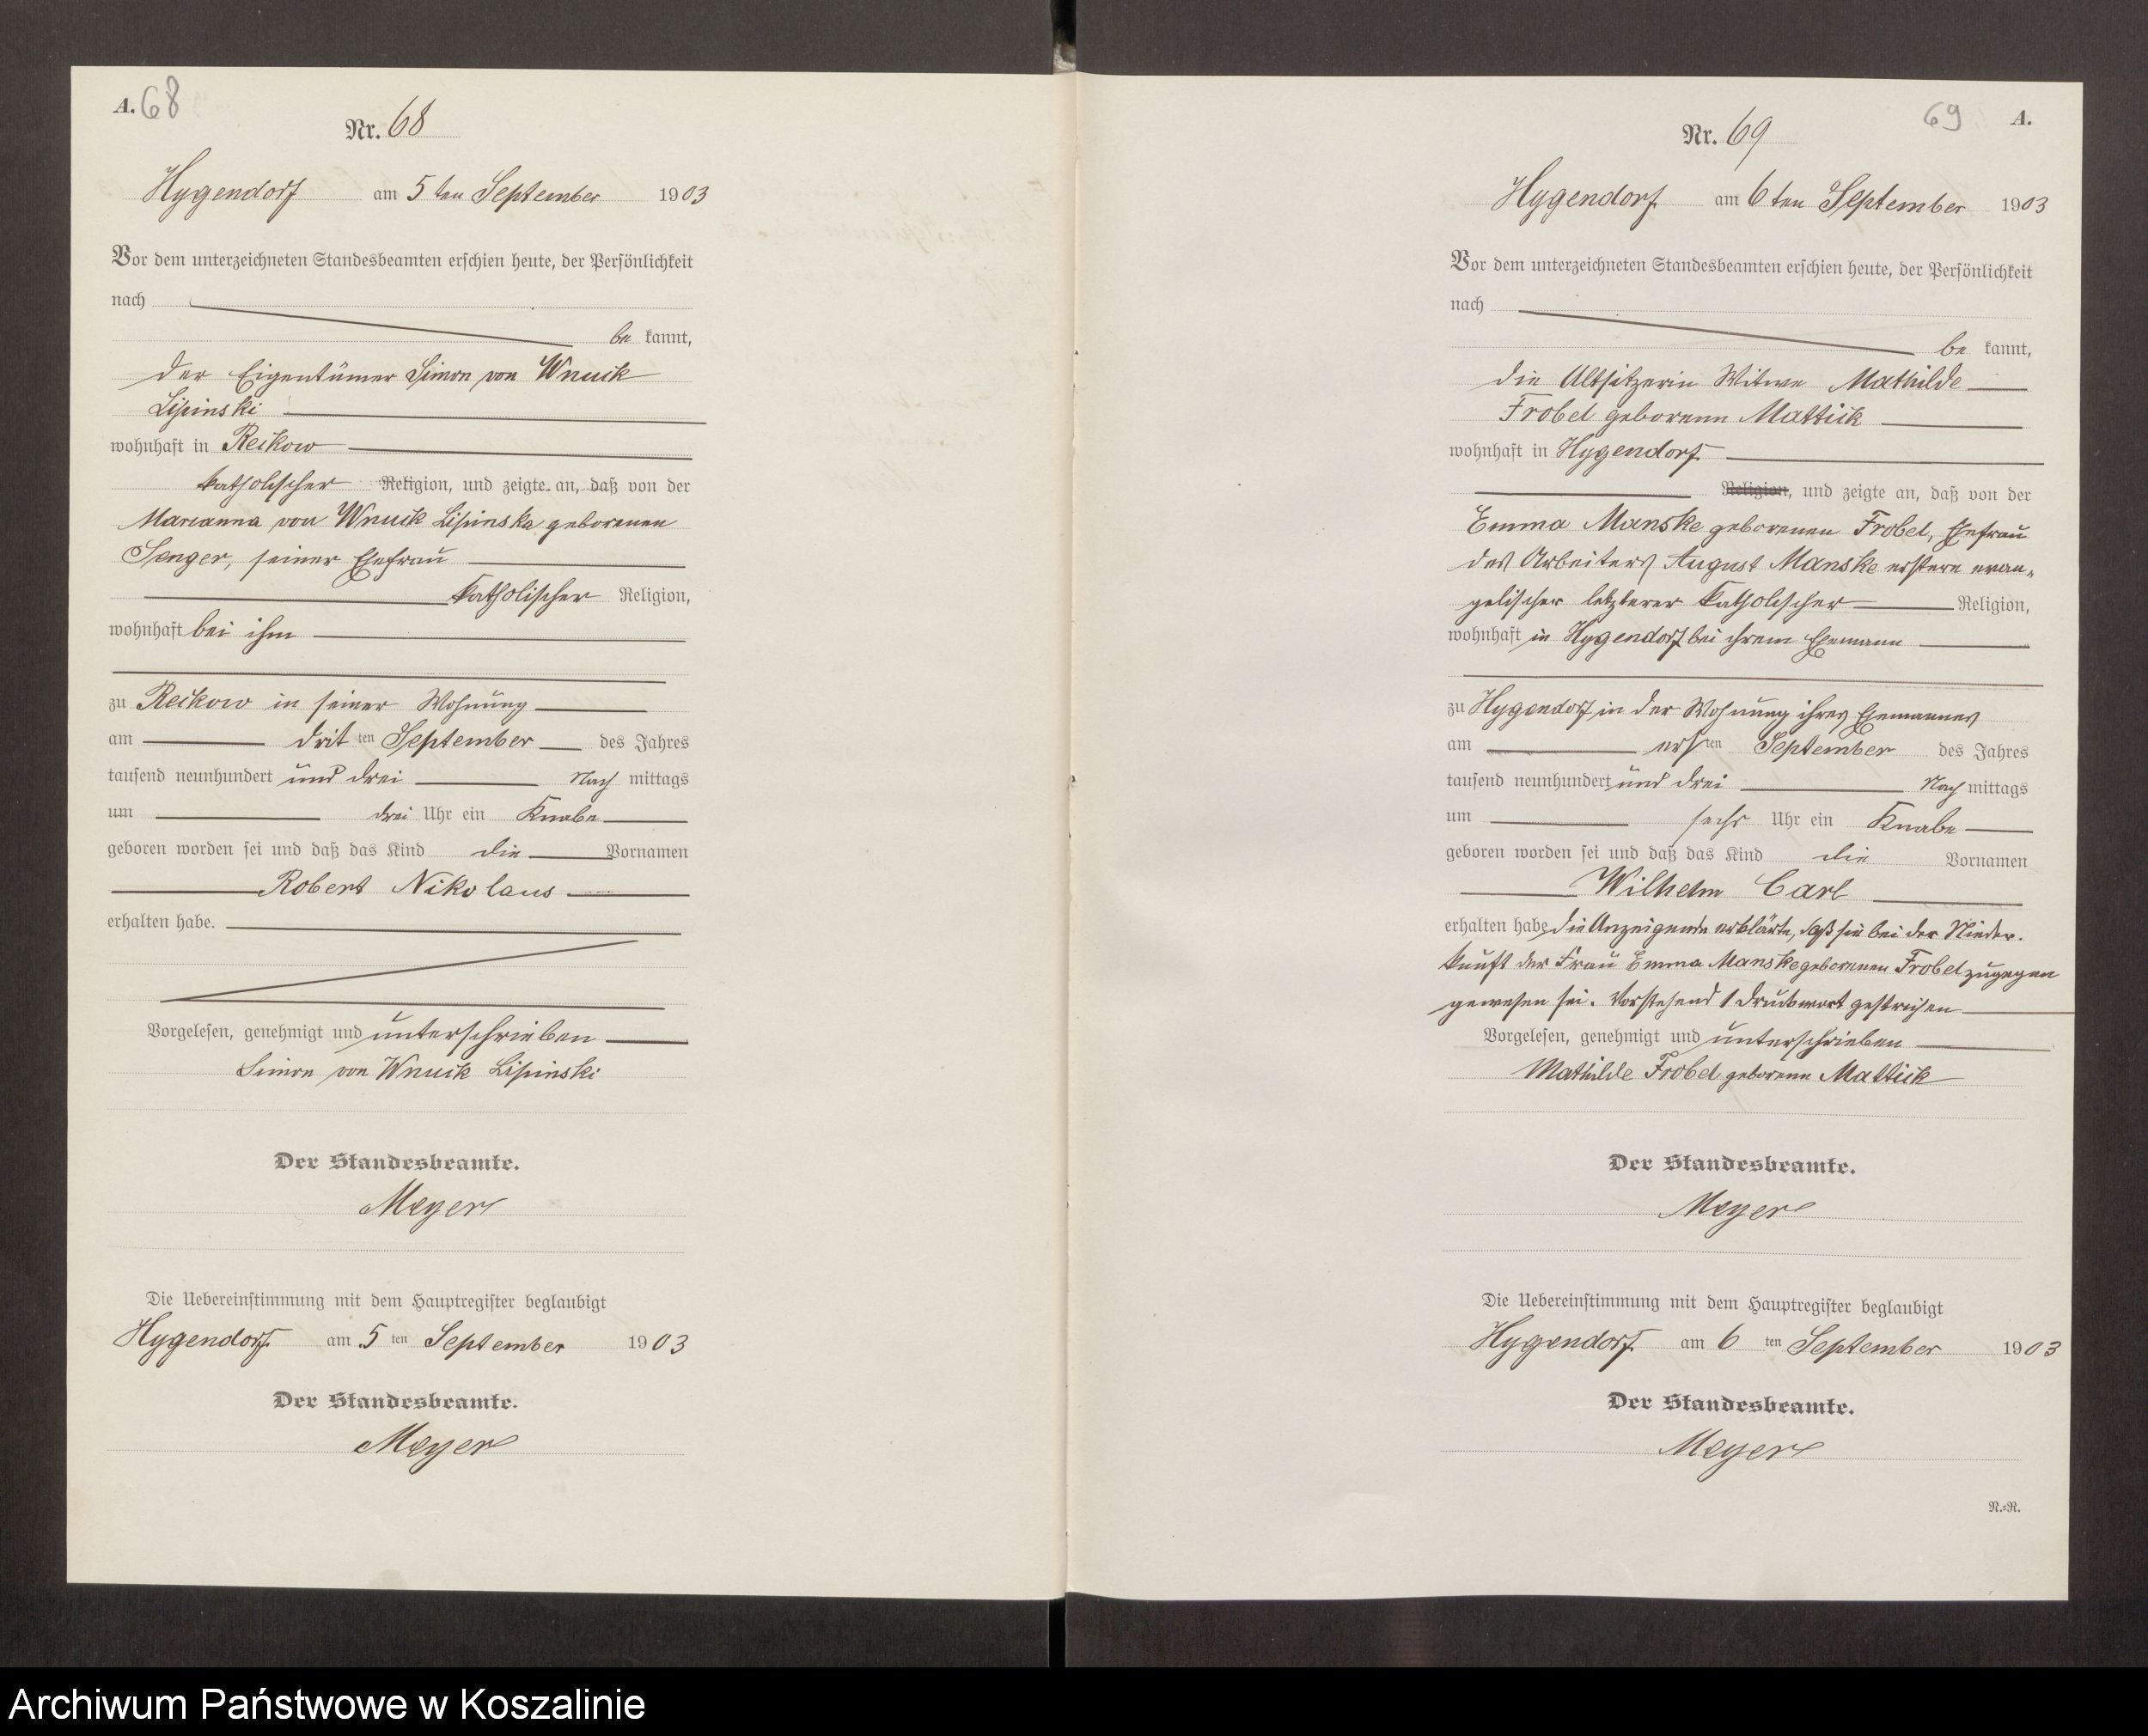 A. 68
Nr. 68
Hygendorf am 5ten September 1903
Vor dem unterzeichneten Standesbeamten erschien heute, der Persönlichkeit
nach
be kannt,
der Eigentümer Simon von Wnuck
Lipinski
wohnhaft in Reckow
katholischer Religion, und zeigte an, daß von der
Marianna von Wnuck Lipinska geborenen
Senger, seiner Ehefrau
katholischer Religion,
wohnhaft bei ihm
zu Reckow in seiner Wohnung
am drit ten September des Jahres
tausend neunhundert und drei Nach mittags
um drei Uhr ein Knabe
geboren worden sei und daß das Kind die Vornamen
Robert Nikolaus
erhalten habe.
Vorgelesen, genehmigt und unterschrieben
Simon von Wnuck Lipinski
Der Standesbeamte.
Meyer
Die Uebereinstimmung mit dem Hauptregister beglaubigt
Hygendorf am 5 ten September 1903
Der Standesbeamte.
Meyer
69 A.
Nr. 69
Hygendorf am 6ten September 1903
Vor dem unterzeichneten Standesbeamten erschien heute, der Persönlichkeit
nach
be kannt,
die Altsitzerin Witwe Mathilde
Frobel geborene Mattick
wohnhaft in Hygendorf
Religion, und zeigte an, daß von der
Emma Manske geborenen Frobel, Ehefrau
des Arbeiters August Manske erstere evan-
gelischer letzterer katholischer Religion,
wohnhaft in Hygendorf bei ihrem Ehemann
zu Hygendorf in der Wohnung ihres Ehemannes
am ers ten September des Jahres
tausend neunhundert und drei Nach mittags
um sechs Uhr ein Knabe
geboren worden sei und daß das Kind die Vornamen
Wilhelm Carl
erhalten habe, die Anzeigende erklärte, daß sie bei der Nieder-
kunft der Frau Emma Manske geborenen Frobel zugegen
gewesen sei. Vorstehend 1 Druckwort gestrichen
Vorgelesen, genehmigt und unterschrieben
Mathilde Frobel geborene Mattick
Der Standesbeamte.
Meyer
Die Uebereinstimmung mit dem Hauptregister beglaubigt
Hygendorf am 6 ten September 1903
Der Standesbeamte.
Meyer
N.=R.
Archiwum Państwowe w Koszalinie